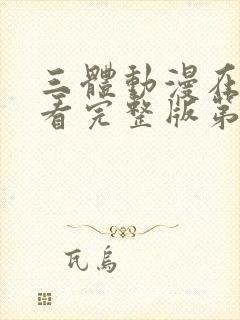 三體動漫在
看完整版第
瓦烏